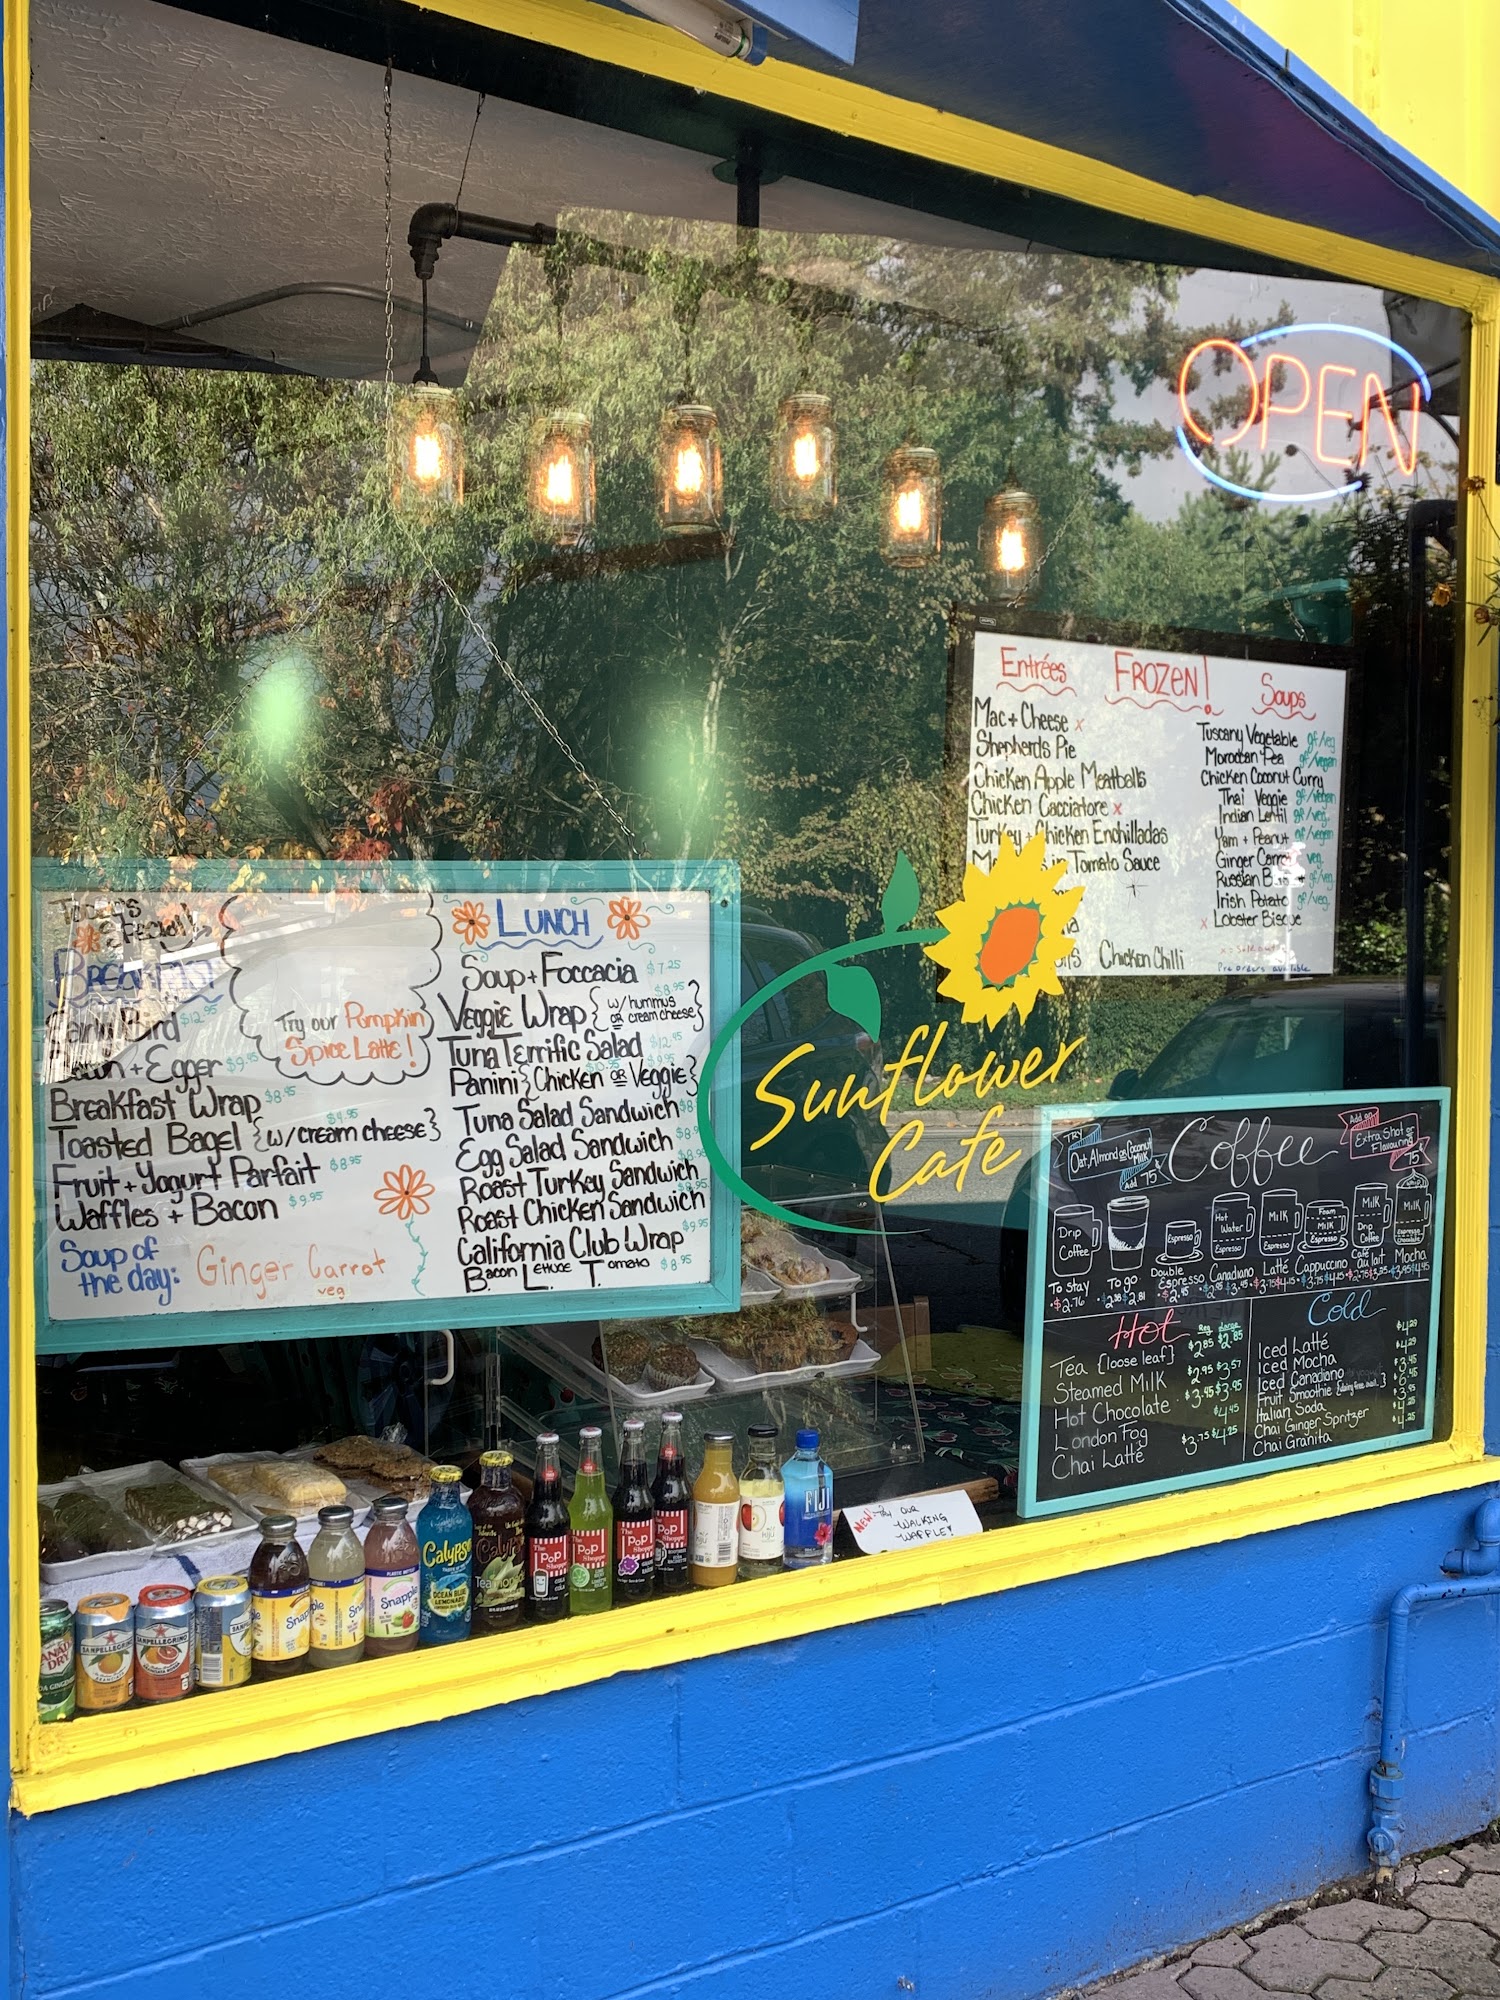 OPEN
Entrées
FROZEN!
Soups
Mac + Cheese x
Shepherds Pie
Chicken Apple Meatballs
Chicken Cacciatore x
Turkey + Chicken Enchilladas
in Tomato Sauce
Chicken Chilli
Tuscany Vegetable gf/veg
Moroccan Pea gf/vegan
Chicken Coconut Curry
Thai Veggie gf/vegan
Indian Lentil gf/veg
Yam + Peanut gf/vegan
Ginger Carrot veg
Russian gf/veg
Irish Potato gf/veg
x Lobster Bisque
x = Sold out
Pre orders available
Today's
Specials
Breakfast
Early Bird $12.95
+ Egger $9.95
Breakfast Wrap $8.95
Toasted Bagel {w/cream cheese} $4.95
Fruit + Yogurt Parfait $8.95
Waffles + Bacon $9.95
Soup of
the day: Ginger Carrot
veg
Try our Pumpkin
Spice Latte!
LUNCH
Soup + Foccacia $7.25
Veggie Wrap {w/hummus OR cream cheese} $8.95
Tuna Terrific Salad $12.95
Panini {Chicken OR Veggie}
Tuna Salad Sandwich
Egg Salad Sandwich
Roast Turkey Sandwich
Roast Chicken Sandwich
California Club Wrap $9.95
Bacon Lettuce Tomato $8.95
Sunflower
Cafe
TRY
Oat, Almond or Coconut
Milk
Add 75
Coffee
Add an
Extra Shot or
Flavouring
75
Drip
Coffee
Espresso
Hot
Water
Espresso
Milk
Espresso
Foam
Milk
Espresso
Milk
Drip
Coffee
Whip
Milk
Espresso
Chocolate
To stay
$2.76
To go
Double
Espresso
$2.45
Canadiano
Latté
Cappuccino
Café
au lait
Mocha
Hot
Reg Large
Tea {loose leaf} $2.85 $2.85
Steamed Milk $2.95 $3.57
Hot Chocolate $3.45 $3.95
London Fog $4.45
Chai Latté $3.75 $4.25
Cold
Iced Latté $4.29
Iced Mocha
Iced Canadiano
Fruit Smoothie
Italian Soda
Chai Ginger Spritzer
Chai Granita
NEW - Try OUR
WALKING
WAFFLE!
CANADA
DRY
SANPELLEGRINO
SANPELLEGRINO
Snapple
Snapple
Snapple
Calypso
OCEAN BLUE
LEMONADE
Calypso
The
Pop
Shoppe
The
Pop
Shoppe
The
Pop
Shoppe
The
Pop
Shoppe
FIJI